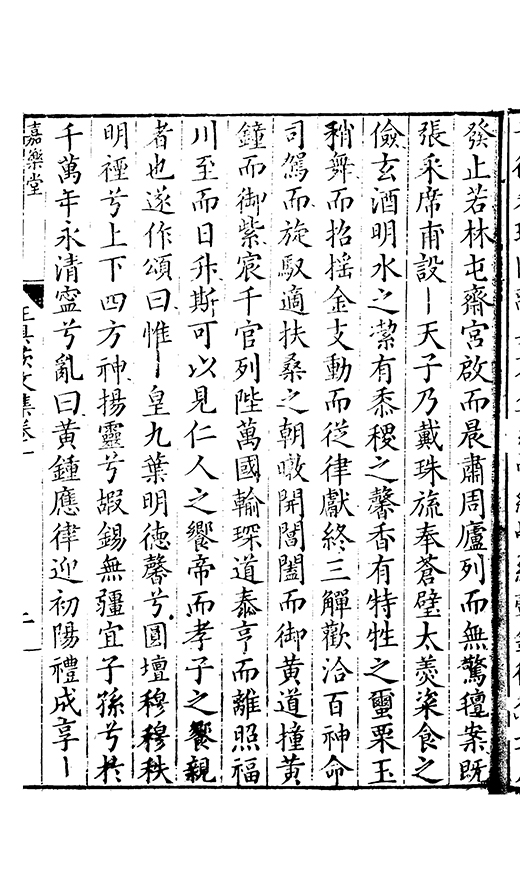 發止若林屯齋宮啟而晨肅周廬列而無驚氊案既
張釆席甫設丨天子乃戴珠旒奉蒼璧太羮粢食之
儉玄酒明水之潔有黍稷之馨香有特牲之璽栗玉
稍舞而招摇金支動而従律獻終三觶歡洽百神命
司駕而旋馭適扶桑之朝暾開閶闔而御黄道撞黄
鐘而御紫宸千官列陛萬國輸琛道泰亨而離照福
川至而日升斯可以見仁人之饗帝而孝子之饗親
者也遂作頌曰惟丨皇九葉明徳馨兮圓壇穆穆秩
明禋兮上下四方神揚靈兮嘏錫無疆宜子孫兮扵
千萬年永清寍兮亂曰黄鍾應律迎初陽禮成享丨
嘉樂堂
文集卷一
二